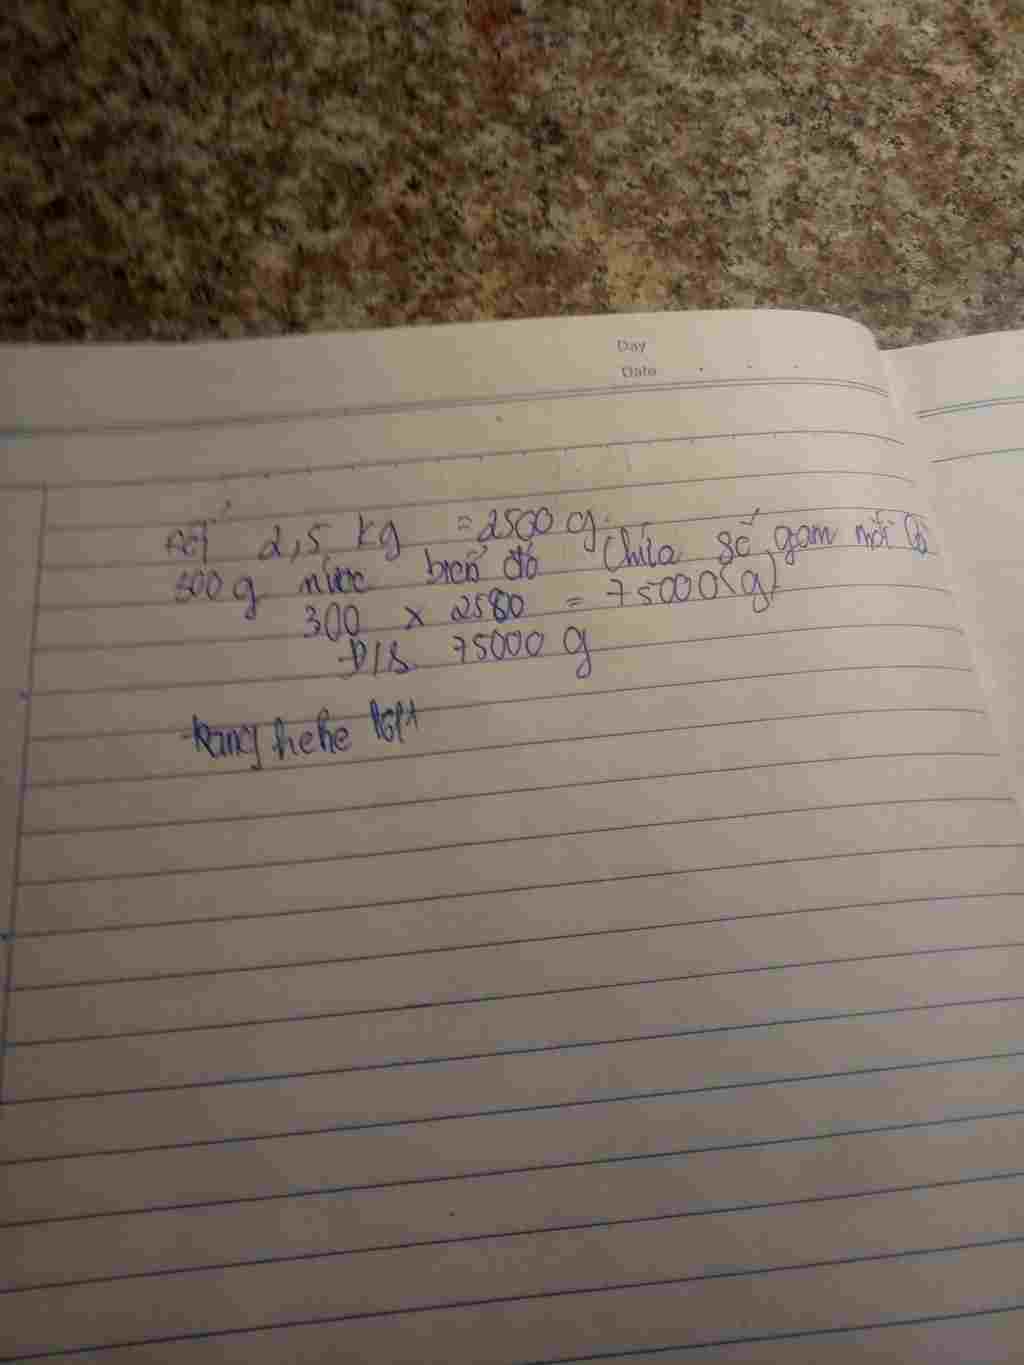 Day
Date
Đổi 2,5 kg = 2500 g
300 g nước biển đó chứa số gam muối là
300 x 2500 = 75000 (g)
Đ/S 75000 g
hehe